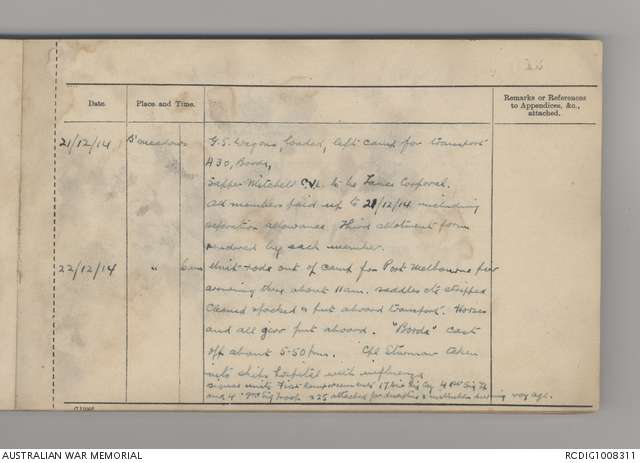 Date.
Place and Time.
Remarks or References
to Appendices, &c.,
attached.
21/12/14 B'meadows G.S. Wagons, loaded, left camp for transport
A30, Borda,
Sapper Mitchell to be Lance Corporal.
All members paid up to 21/12/14 including
seperation allowance Third allotment form
rendered by each member.
22/12/14 " Unit rode out of camp for Port Melbourne pier
arriving there about 11am. saddles etc stripped
cleaned & packed & put aboard transport. Horses
and all gear put aboard. "Borda" cast
off about 5-50 pm. Cpl Sturman taken
into ships hospital with
Signal units First reinforcements
and attached for duty
AUSTRALIAN WAR MEMORIAL
RCDIG1008311